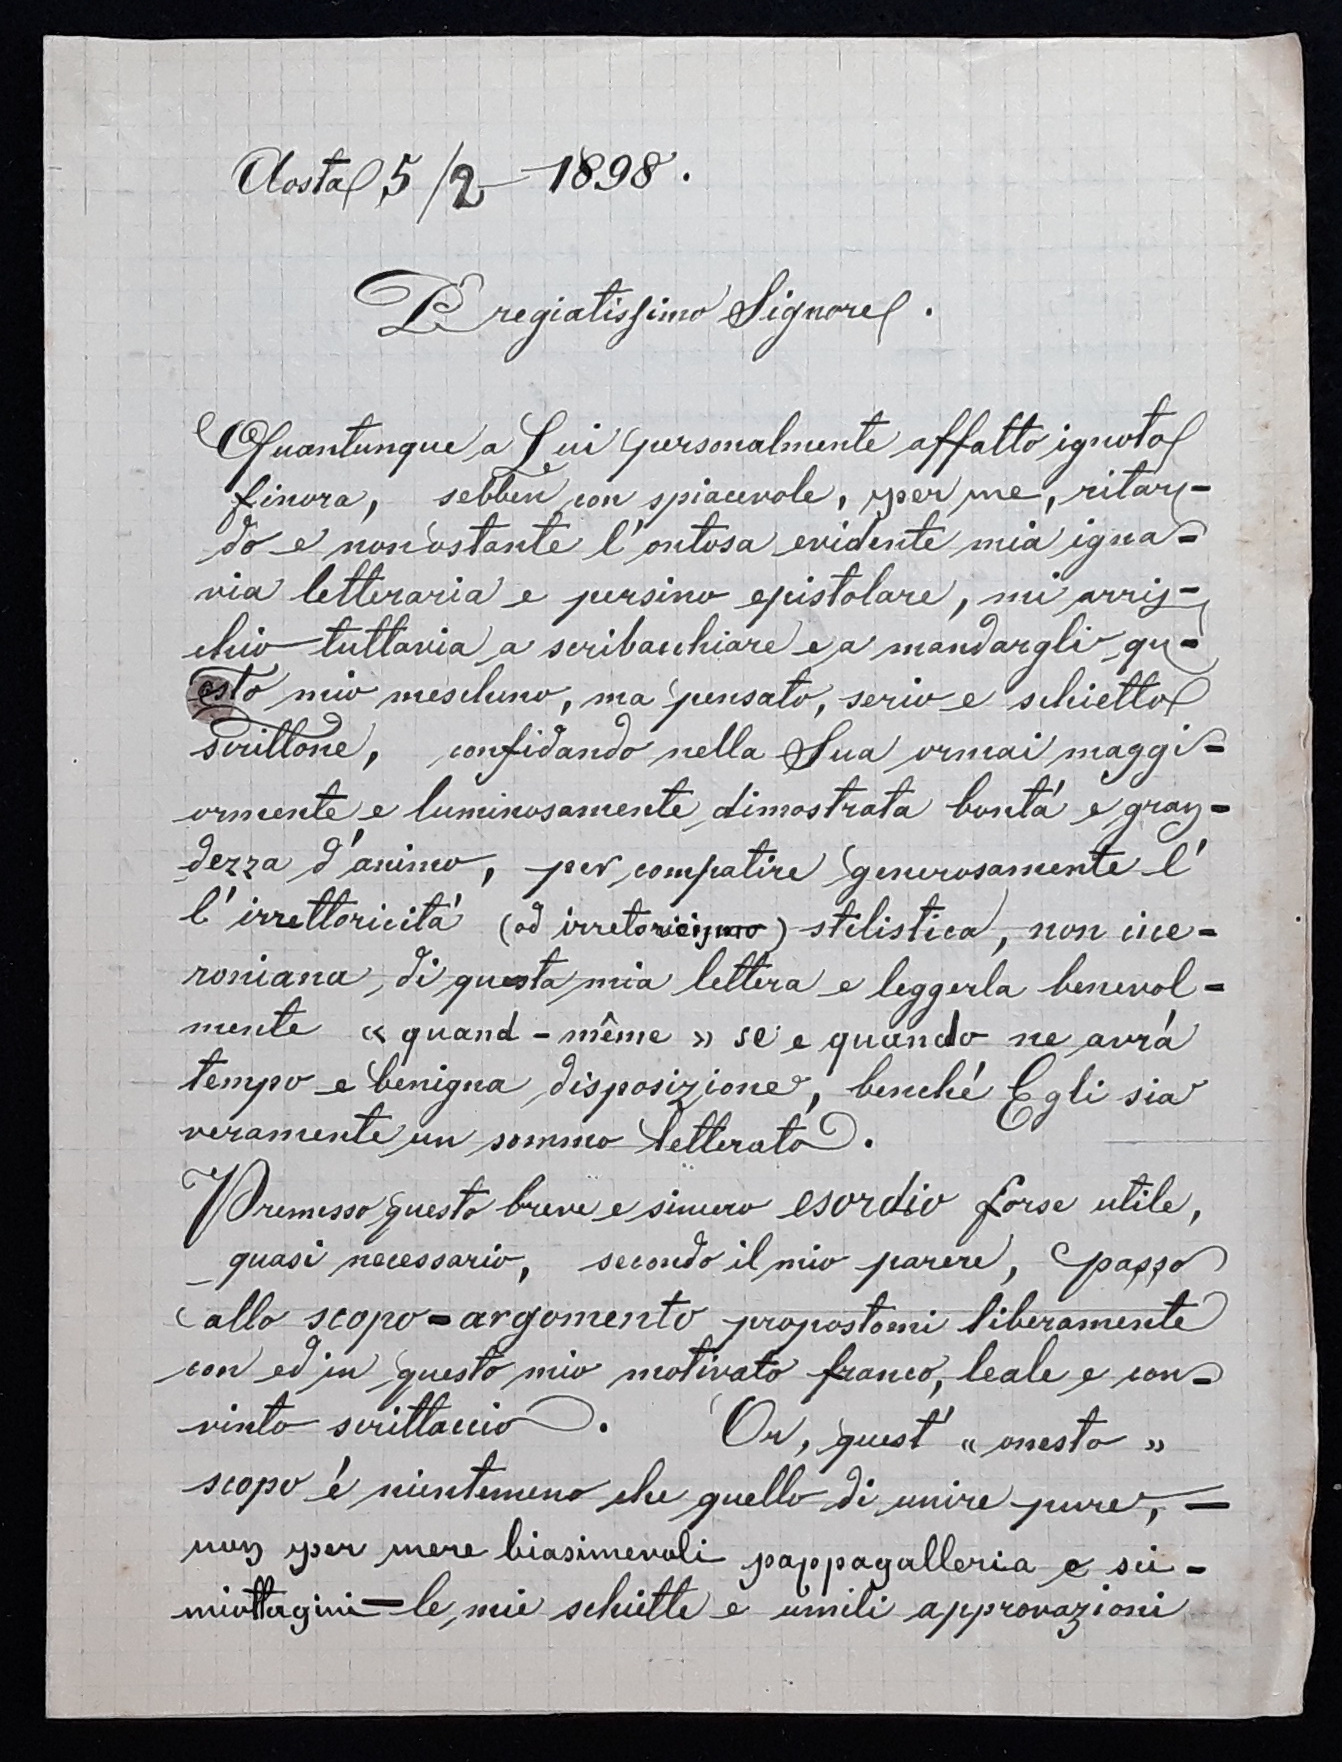 Aosta 5/2 - 1898.
Pregiatissimo Signore.
Quantunque a Lui personalmente affatto ignoto
finora, sebben con spiacevole, per me, ritar-
do e nonostante l'ontosa evidente mia igna-
via letteraria e persino epistolare, mi arris-
chio tuttavia a scribacchiare e a mandargli qu-
esto mio meschino, ma pensato, serio e schietto
scrittone, confidando nella Sua ormai maggi-
ormente e luminosamente dimostrata bontá e gran-
dezza d'animo, per compatire generosamente l'
l'irrettoricitá (od irretoricismo) stilistica, non cice-
roniana, di questa mia lettera e leggerla benevol-
mente « quand - même » se e quando ne avrá
tempo e benigna disposizione, benché Egli sia
veramente un sommo letterato.
Premesso questo breve e sincero esordio forse utile,
quasi necessario, secondo il mio parere, passo
allo scopo-argomento propostomi liberamente
con ed in questo mio motivato franco, leale e con-
vinto scrittaccio. Or, quest' « onesto »
scopo é nientemeno che quello di unire pure, —
non per mere biasimevoli pappagalleria e sci-
miottagini — le mie schiette e umili approvazioni